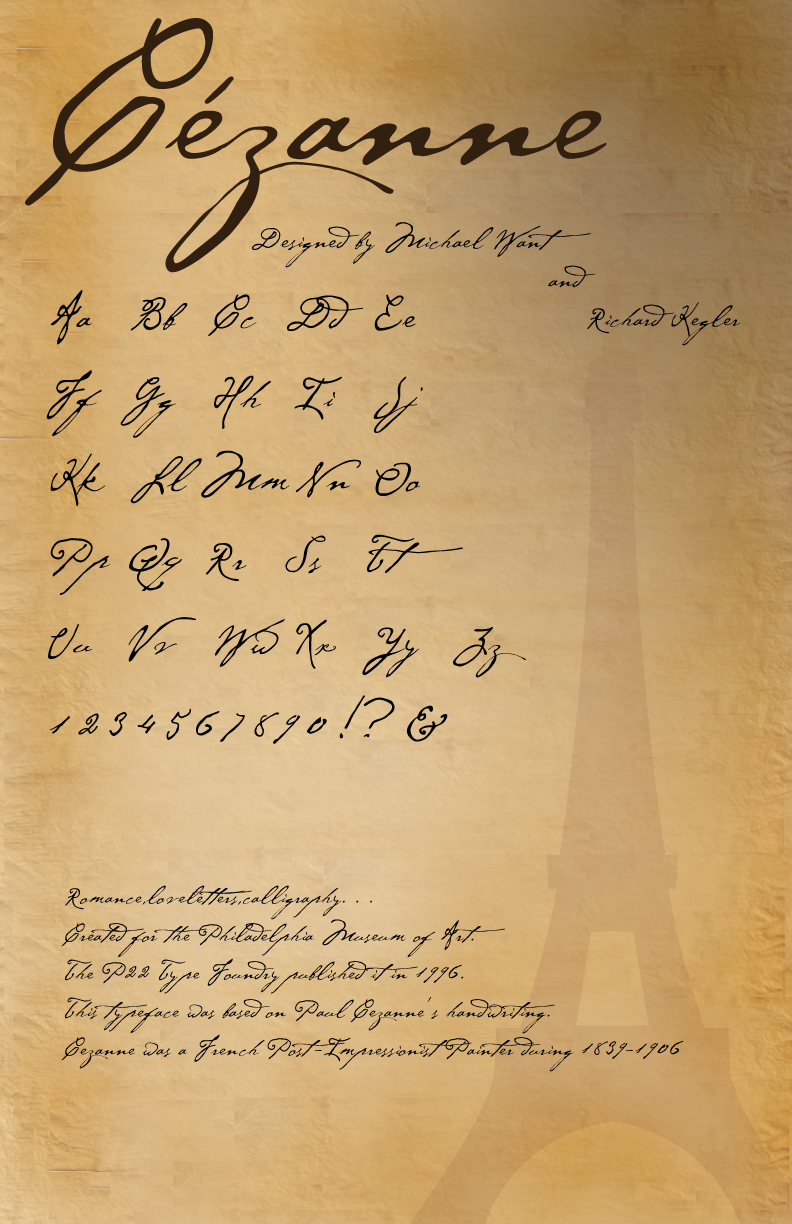 Cézanne
Designed by Michael Want
and
Richard Kegler
Aa Bb Cc Dd Ee
Ff Gg Hh Ii Jj
Kk Ll Mm Nn Oo
Pp Qq Rr Ss Tt
Uu Vv Ww Xx Yy Zz
1 2 3 4 5 6 7 8 9 0 !? &
Romance,loveletters,calligraphy. . .
Created for the Philadelphia Museum of Art.
The P22 Type Foundry published it in 1996.
This typeface was based on Paul Cezanne's handwriting.
Cezanne was a French Post-Impressionist Painter during 1839-1906